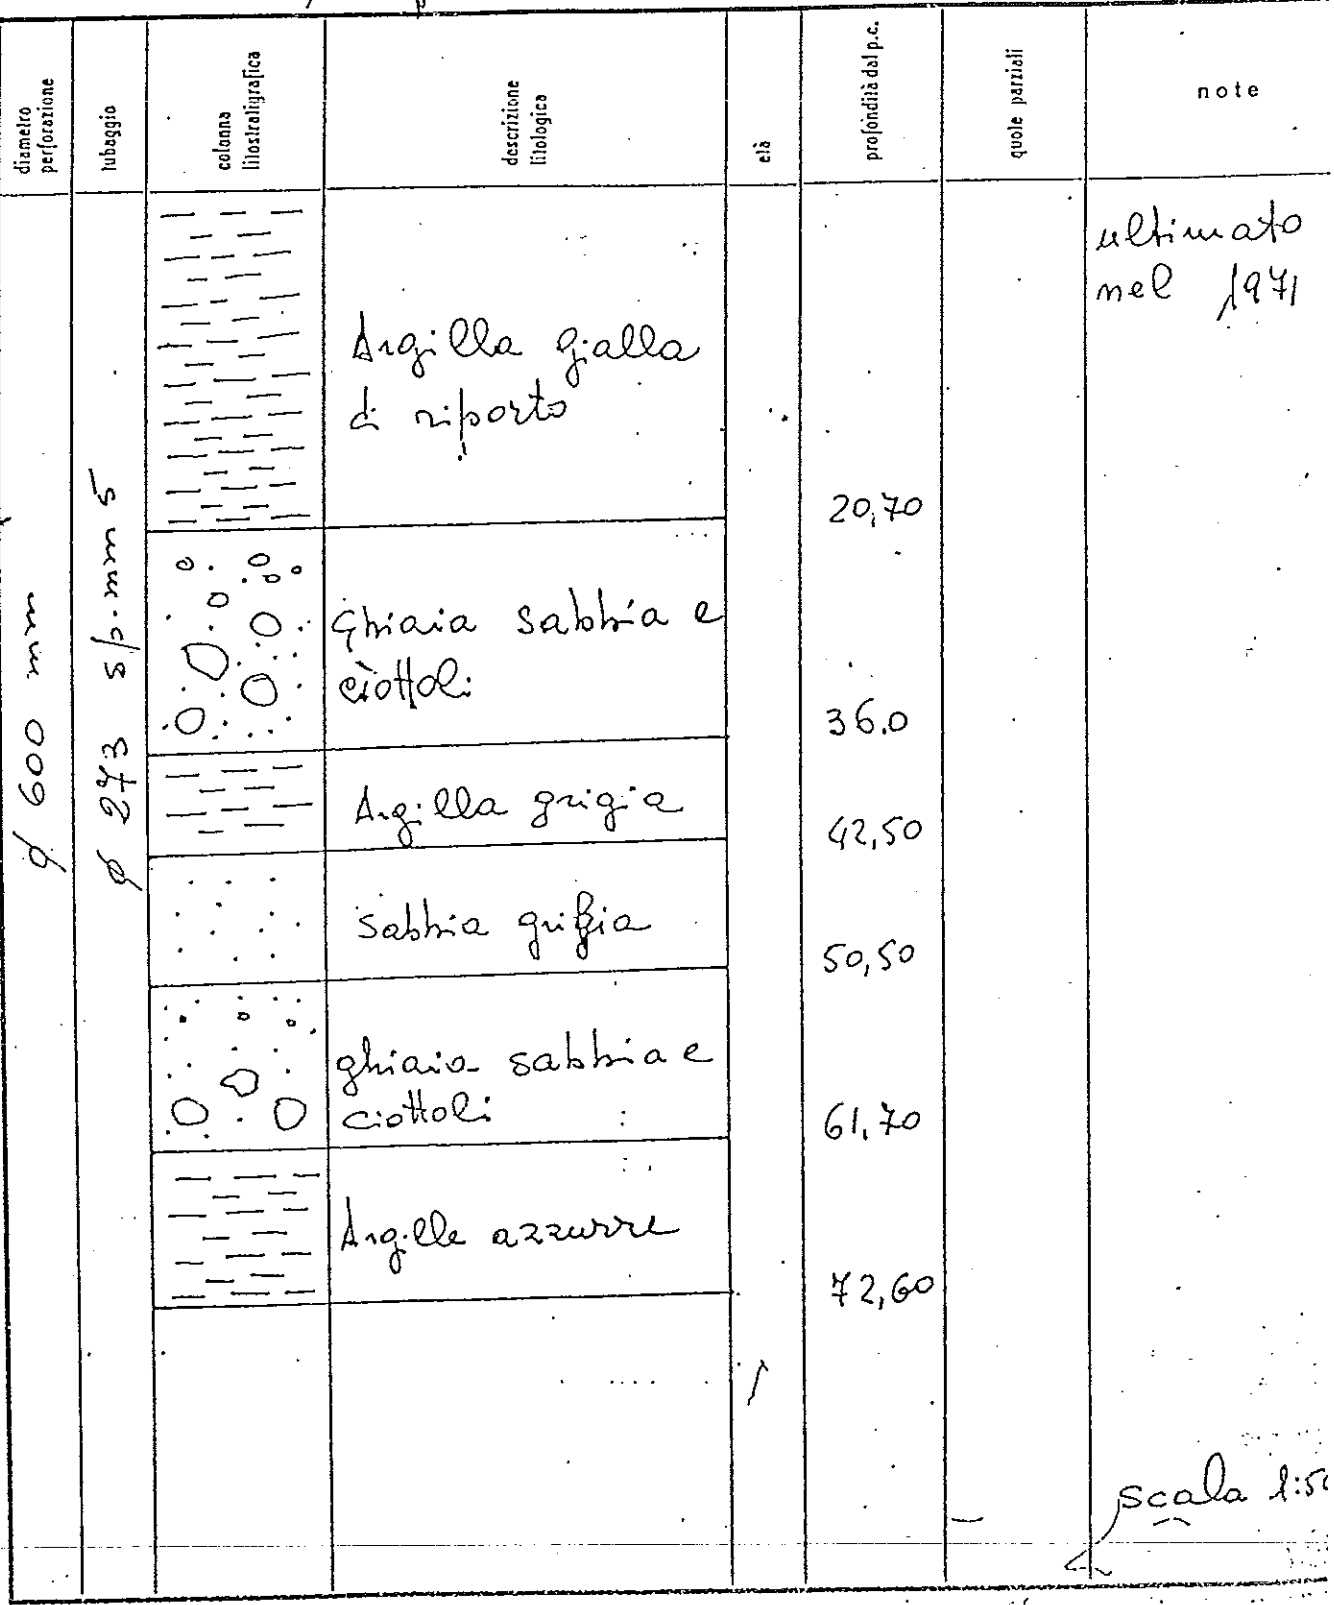 diametro
perforazione
tubaggio
colonna
litostratigrafica
descrizione
litologica
età
profondità dal p.c.
quote parziali
note
ø 600 mm
ø 273 sp. mm 5
ultimato
nel 1971
Argilla gialla
di riporto
20,70
Ghiaia sabbia e
ciottoli
36.0
Argilla grigia
42,50
Sabbia grigia
50,50
ghiaia sabbia e
ciottoli
61,70
Argille azzurre
72,60
scala